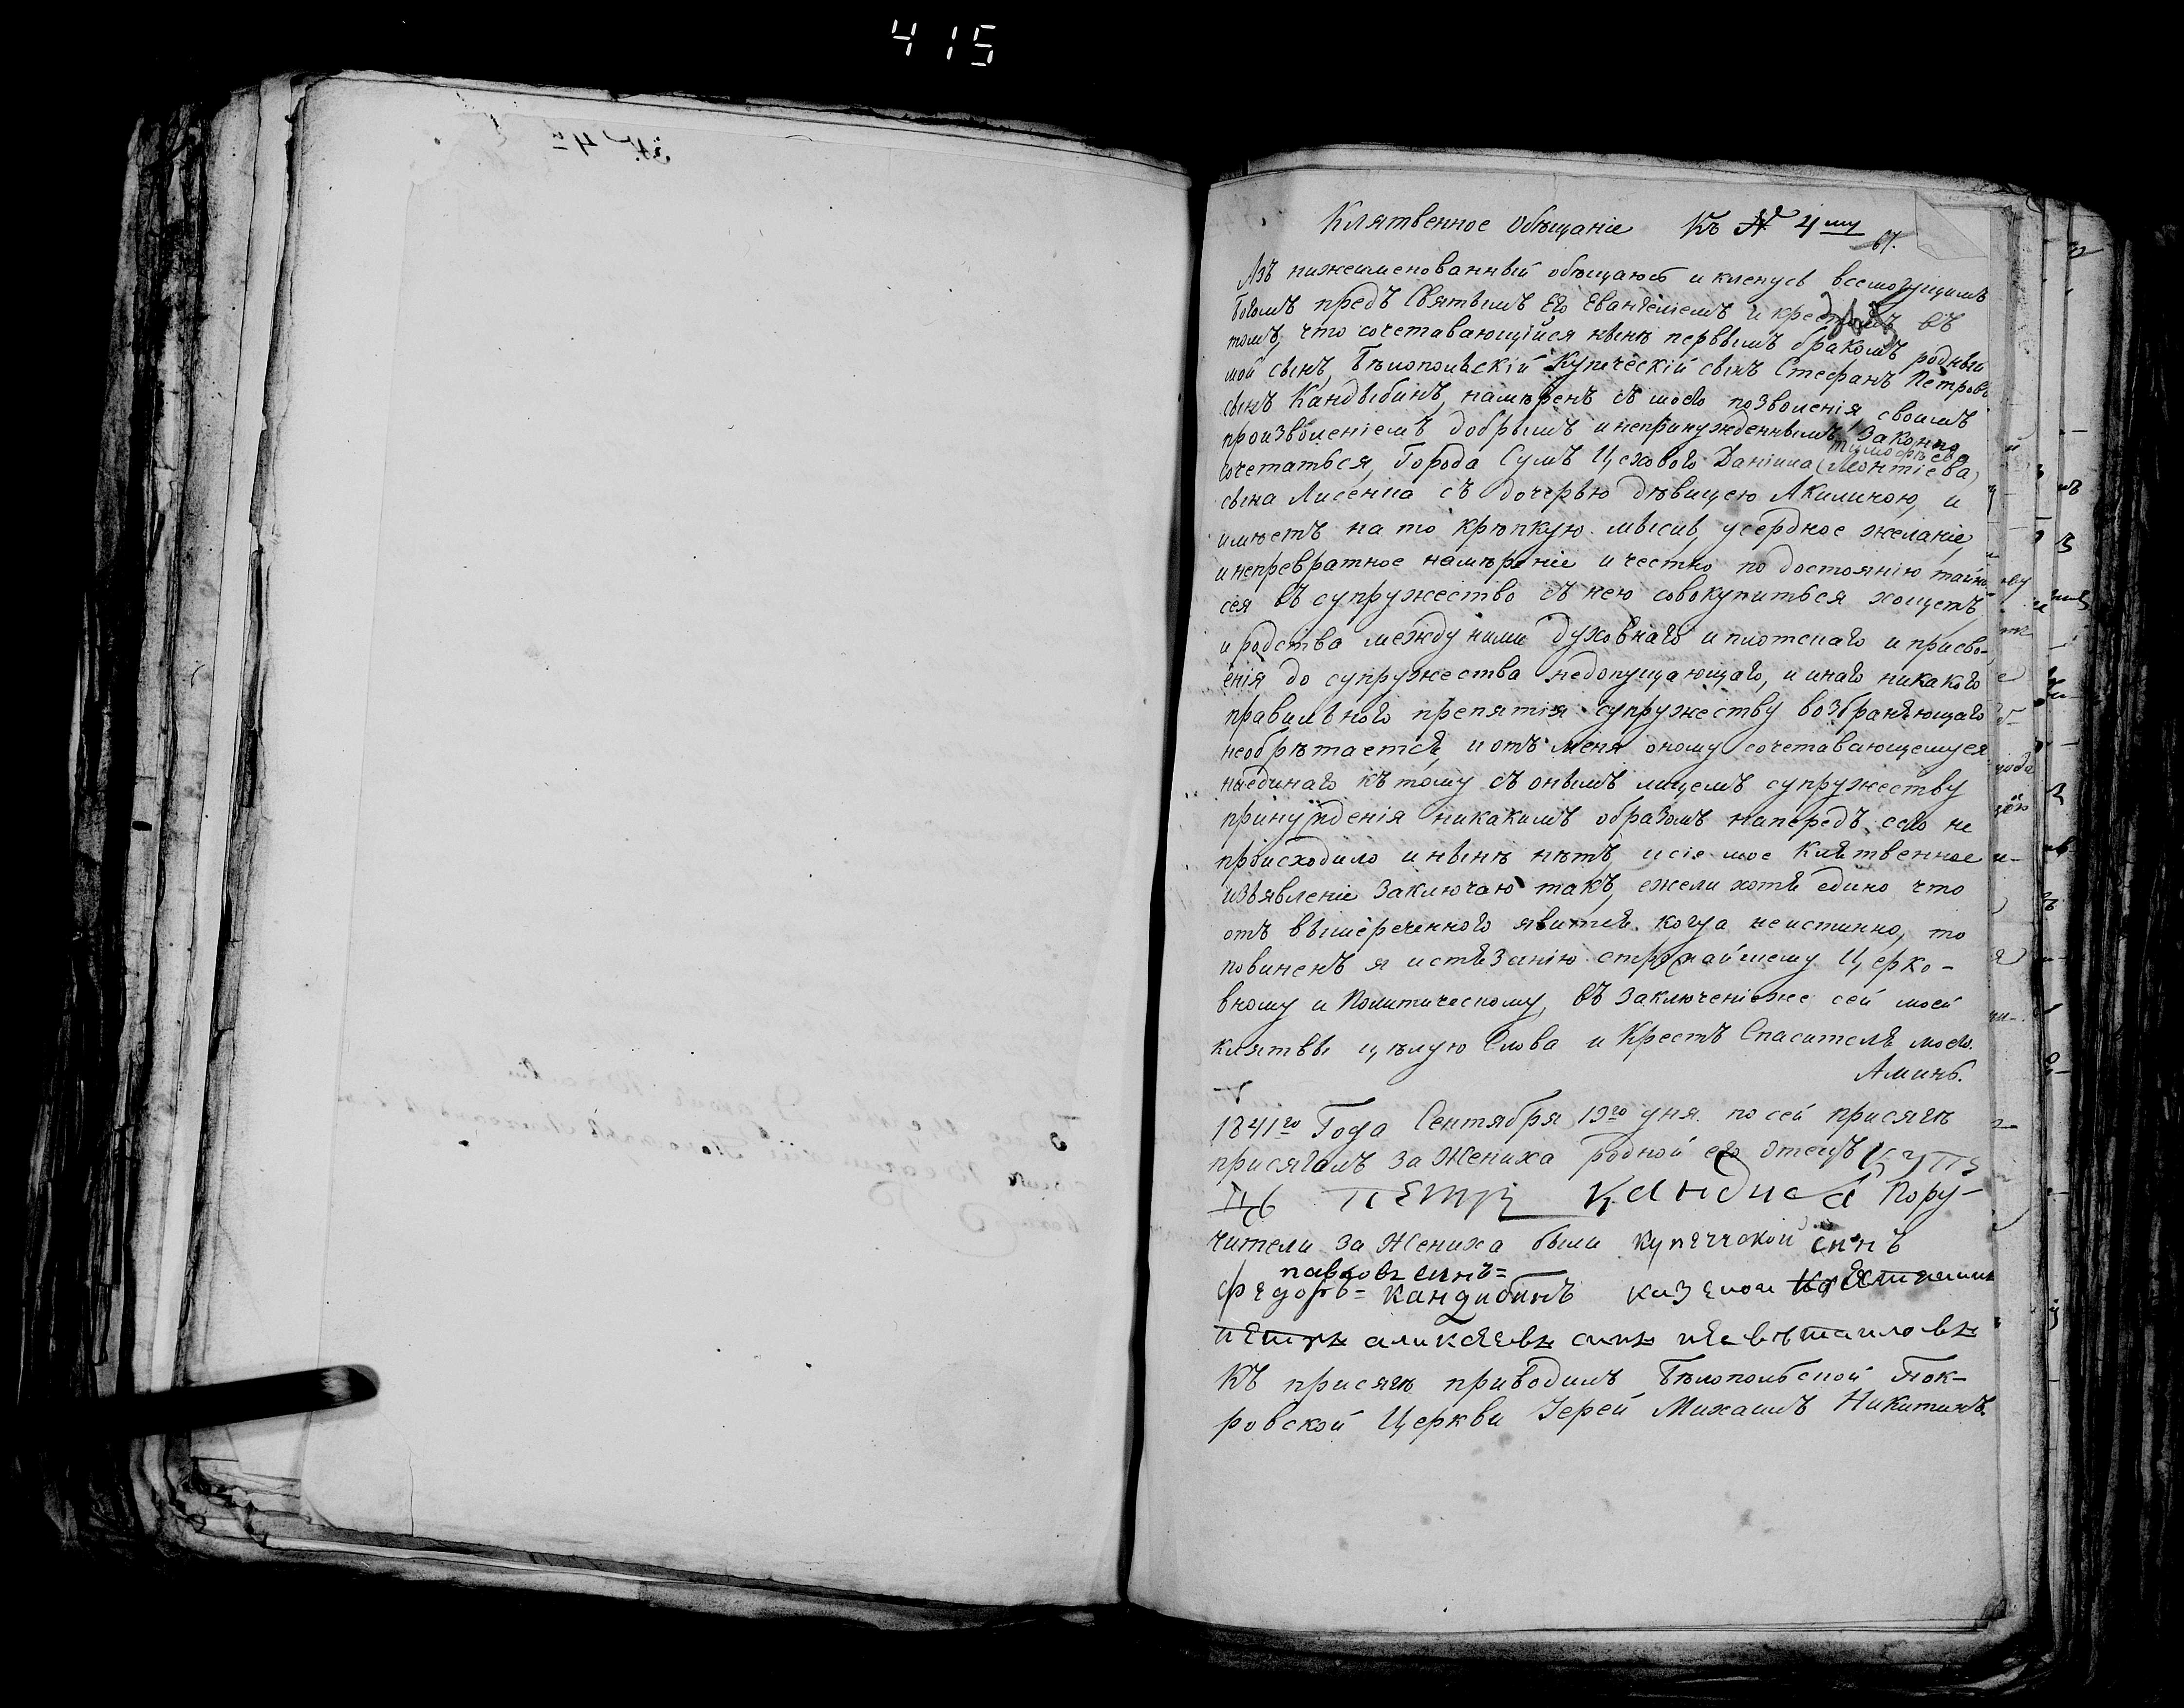 415
Клятвенное Обѣщаніе Къ № 4му
67.
Азъ нижеименованный обѣщаюсь и кленусь всемогущимъ
Богомъ предъ Святымъ Его Евангеліемъ и крестомъ въ
томъ, что сочетавающійся нынѣ первымъ бракомъ родный
мой сынъ, Бѣлопольскій Купеческій сынъ Стефанъ Петровъ
сынъ Кандыбинъ, намѣренъ съ моего позволенія своимъ
произволеніемъ добрымъ и непринужденнымъ, Законно
сочетаться, Города Сумъ Цеховаго Даніила (Леонтіева)
Тимофѣева
сына Лисенка съ дочерью дѣвицею Акилиною, и
имѣетъ на то крѣпкую мысль, усердное желаніе,
и непревратное намѣреніе и честно по достоянію тайны
сея въ супружество съ нею совокупиться хощетъ
и родства между ними духовнаго и плотскаго и присво-
енія до супружества недопущающаго, и инаго никакого
правильного препятія супружеству возбраняющаго
необрѣтается, и отъ меня оному сочетавающемуся
ниединаго къ тому съ онымъ лицемъ супружеству
принужденія никакимъ образомъ напередъ сего не
происходило и нынѣ нѣтъ, и сіе мое Клятвенное
изъявленіе заключаю такъ, ежели хотя едино что
отъ вышереченного явится когда неистинно, то
повиненъ я истязанію строжайшему Церко-
вному и Политическому, въ заключеніеже сей моей
клятвы цѣлую Слова и Крестъ Спасителя моего.
Аминь.
1841го Года Сентября 19го дня по сей присягѣ
присягалъ за Жениха родной его отецъ купе
Петръ Пору-
чители за Жениха были купеческой синъ
павловъ синъ=
федоръ= кандибинъ
Къ присягѣ приводилъ Бѣлопольской Пок-
ровской Церкви Іерей Михаилъ Никитинъ